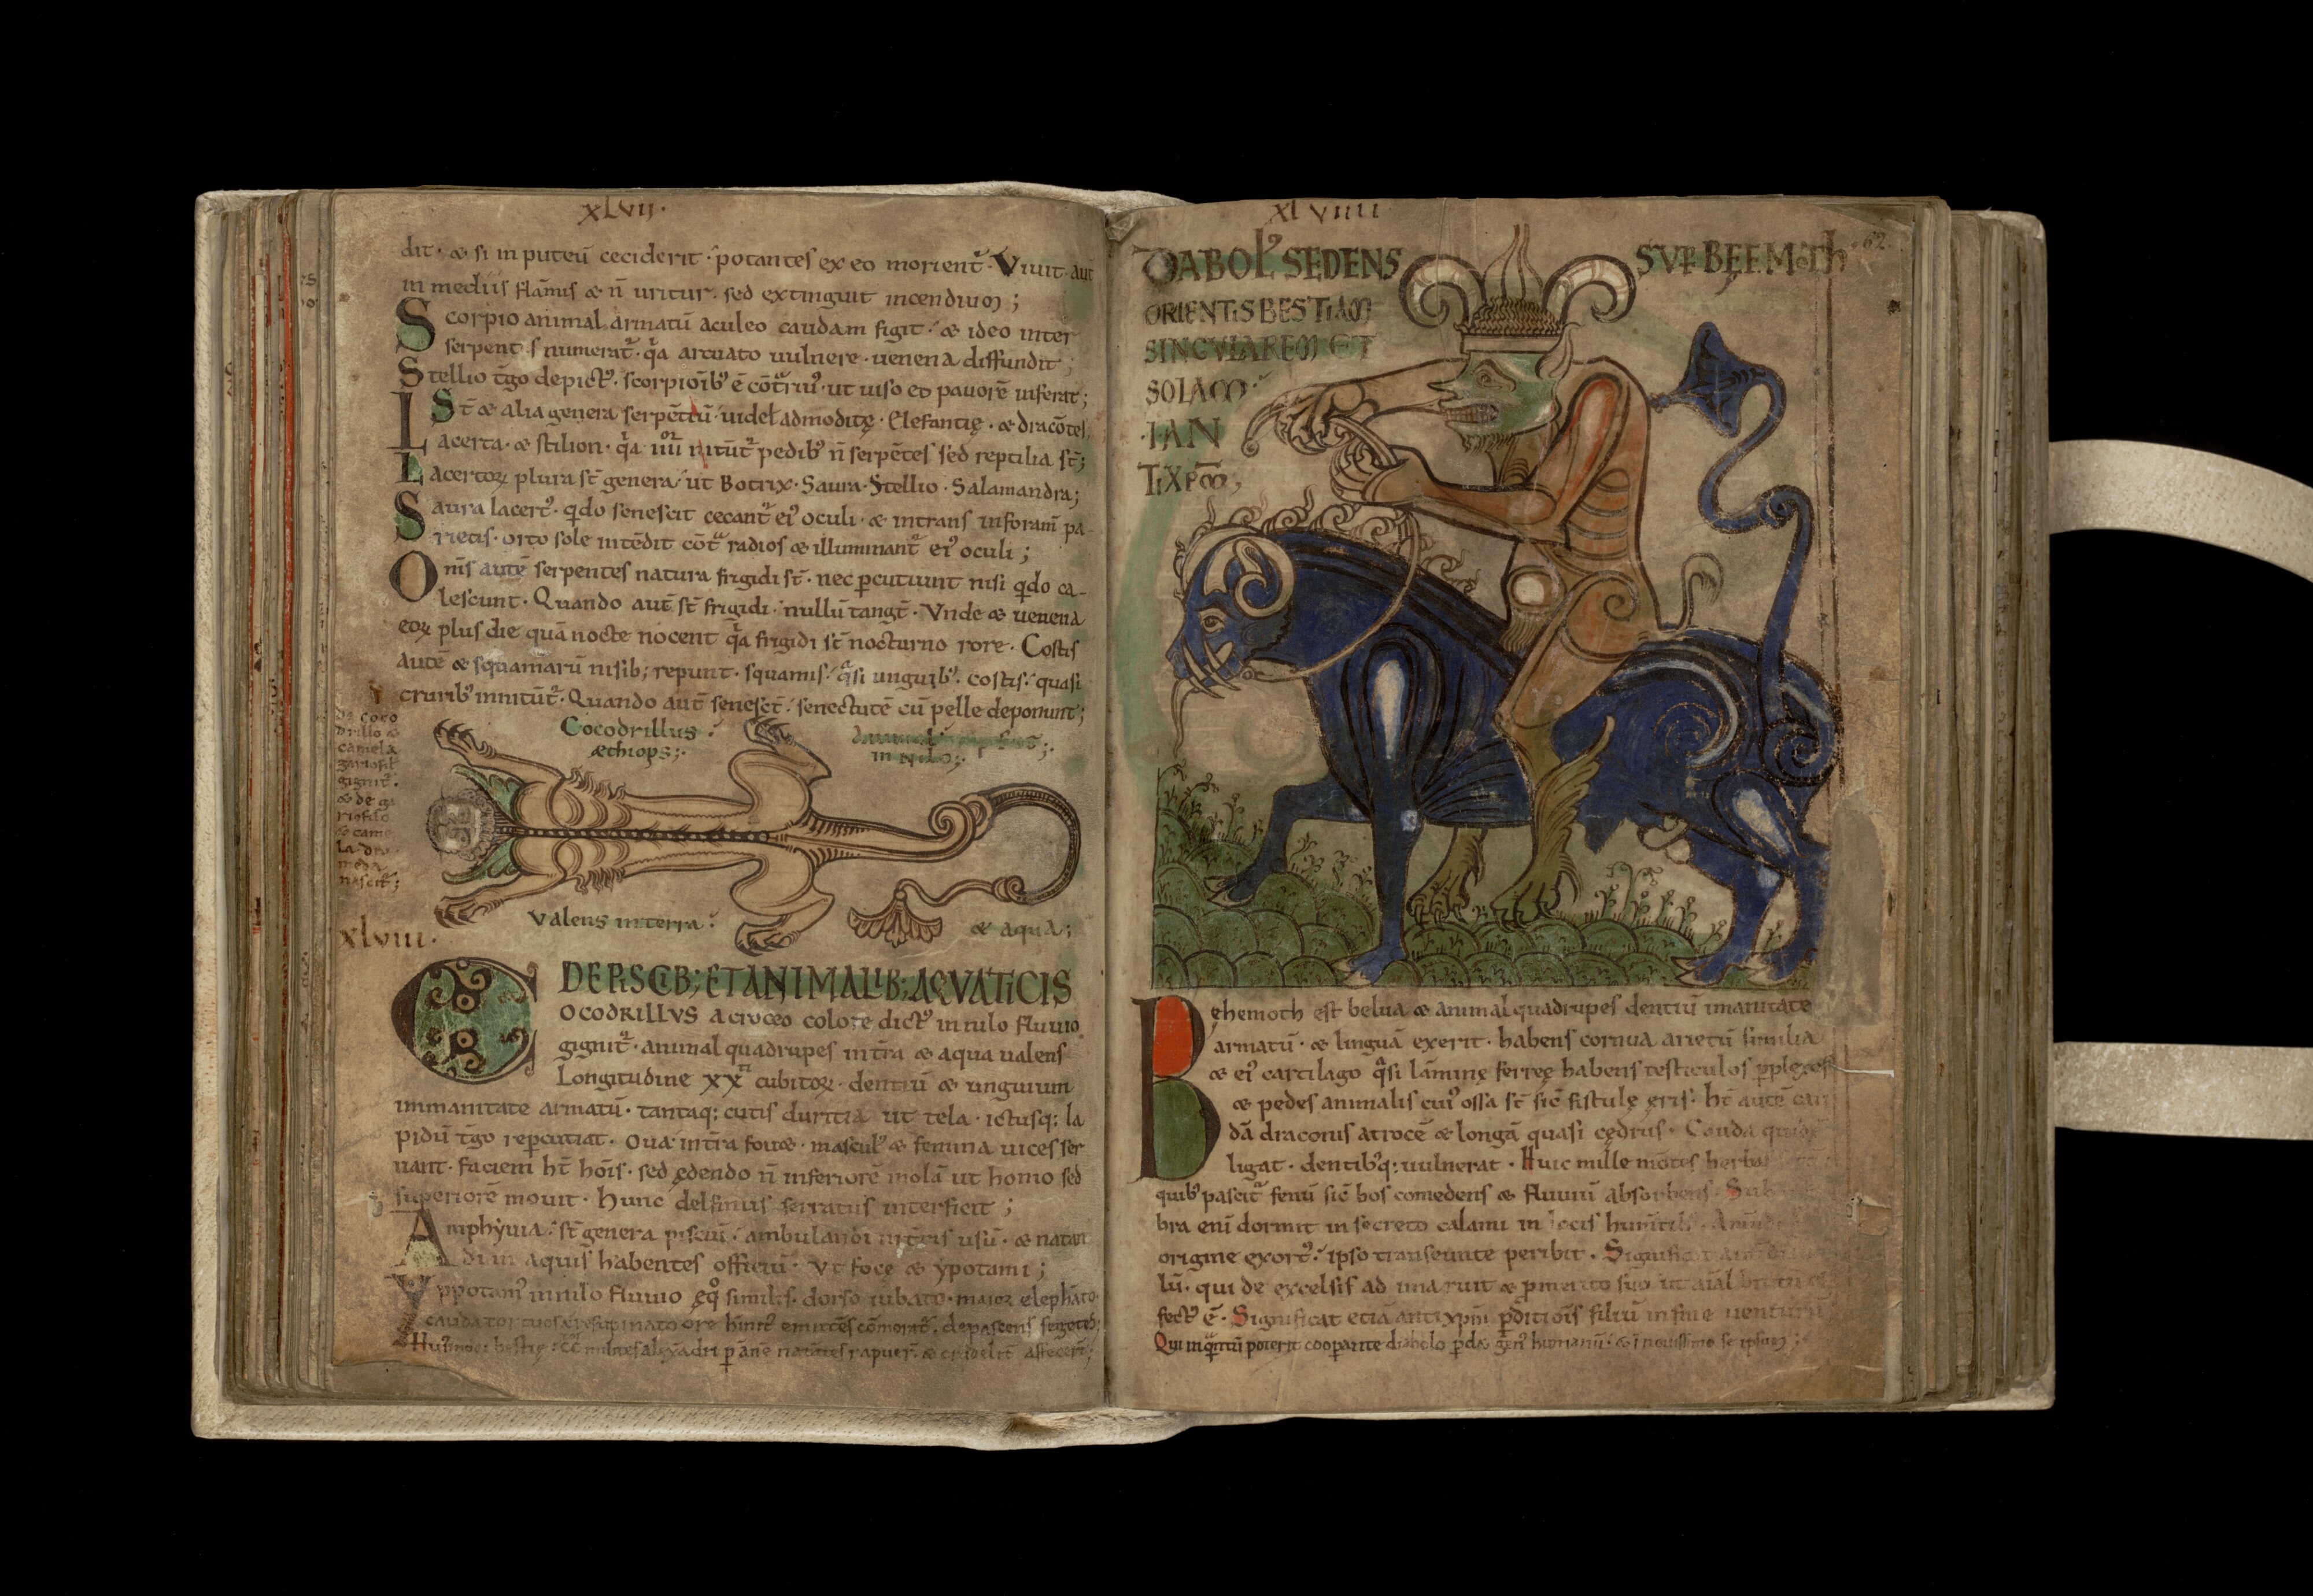 xlvij.
dit· & si in puteū ceciderit· potantes ex eo morient᷑· Viuit aut
in mediis flāmis & n̄ uritur· sed extinguit incendium;
Scorpio animal armatū aculeo caudam figit· & ideo inter
serpent s numerat᷑· q̄a arcuato uulnere· uenena diffundit;
Stellio t̄go depictꝰ· scorpionibꝰ ē cōtriꝰ· ut uiso eo pauorē inferat;
St̄ & alia genera serpētiū· uidel admodite· Elefantie· & dracōtes
Lacerta· & stilion· q̄a nitūt᷑ pedibꝰ n̄ serpētes sed reptilia st̄;
Lacertoꝝ plura st̄ genera· ut Botrix· Saura· Stellio· Salamandra;
Saura lacertꝰ· qdo senescit cecant᷑ eiꝰ oculi· & intrans in foram pa-
rietis· orto sole intēdit cōt radios & illuminant᷑ eiꝰ oculi;
Onīs autē serpentes natura frigidi st̄· nec pcutiunt nisi qdo ca-
lescunt· Quando aut̄ st̄ frigidi· nullū tangt̄· Vnde & uenena
eoꝝ plus die quā nocte nocent q̄a frigidi st̄ nocturno rore· Costis
autē & squamarū nisib; repunt· squamis· q̄si unguibꝰ· costis· quasi
cruribꝰ innitūt᷑· Quando aut̄ senesct̄· senectutē cū pelle deponunt;
Cocodrillus·
ethiops;·
in Nilo;·
de coco
drillo &
camela
gignit᷑·
& de ga
riofilo
& came
la dro
meda
nascit᷑;
Valens in terra·
& aqua;
xlviii·
DE PISCIB; ET ANIMALIB; AQVATICIS
COCODRILLVS a croceo colore dictꝰ in nilo fluuio
gignit᷑· animal quadrupes in tr̄a & aqua ualens
Longitudine xx cubitoꝝ· dentiū & unguium
immanitate armatū· tantaq; cutis duritia ut tela· ictusq; la
pidū t̄go repcutiat· Oua in tr̄a fouet· masculꝰ & femina uices ser
uant· faciem ht̄ hōis· sed edendo n̄ inferiorē molā ut homo sed
superiorē mouit· hunc delfinus serratus interficit;
Amphyuia· st̄ genera pisciū· ambulandi in tr̄is usū· & natan
di in aquis habentes officiū· Vt foce & ypotami;
Yppotamꝰ in nilo fluuio eqꝰ similis· dorso iubato· maior elephāto·
cauda tortuosa
xlviiii
62
DIABOLꝰ SEDENS SVP BEEMOTH
ORIENTIS BESTIAM
SINGVLAREM ET
SOLAM·
·I AN
TIXPM;
Behemoth est belua & animal quadrupes dentiū imanitate
armatū· & linguā exerit· habens cornua arietū similia
& eiꝰ cartilago q̄si lamine ferree habens testiculos pplexos
& pedes animalis cuiꝰ ossa st̄ sic̄ fistule eris· ht̄ autē cau
dā draconis atrocē & longā quasi cedrus· Cauda
ligat· dentibꝰq; uulnerat· Huic mille mōtes herba
quibꝰ pascit᷑ fenū sic̄ bos comedens & fluuiū absorbens· Sub
bra enī dormit in secreto calami in locis humitis·
origine exortꝰ· ipso transeunte peribit· Significat
lū· qui de excelsis ad ima ruit & p merito suo ut aīal brutū
fectꝰ ē· Significat etiā antixpm pditiōis filiū in fine uenturū
Qui in q̄ntū poterit cooperante diabolo pdet genꝰ humanū· & ī nouissimo se ipsum;